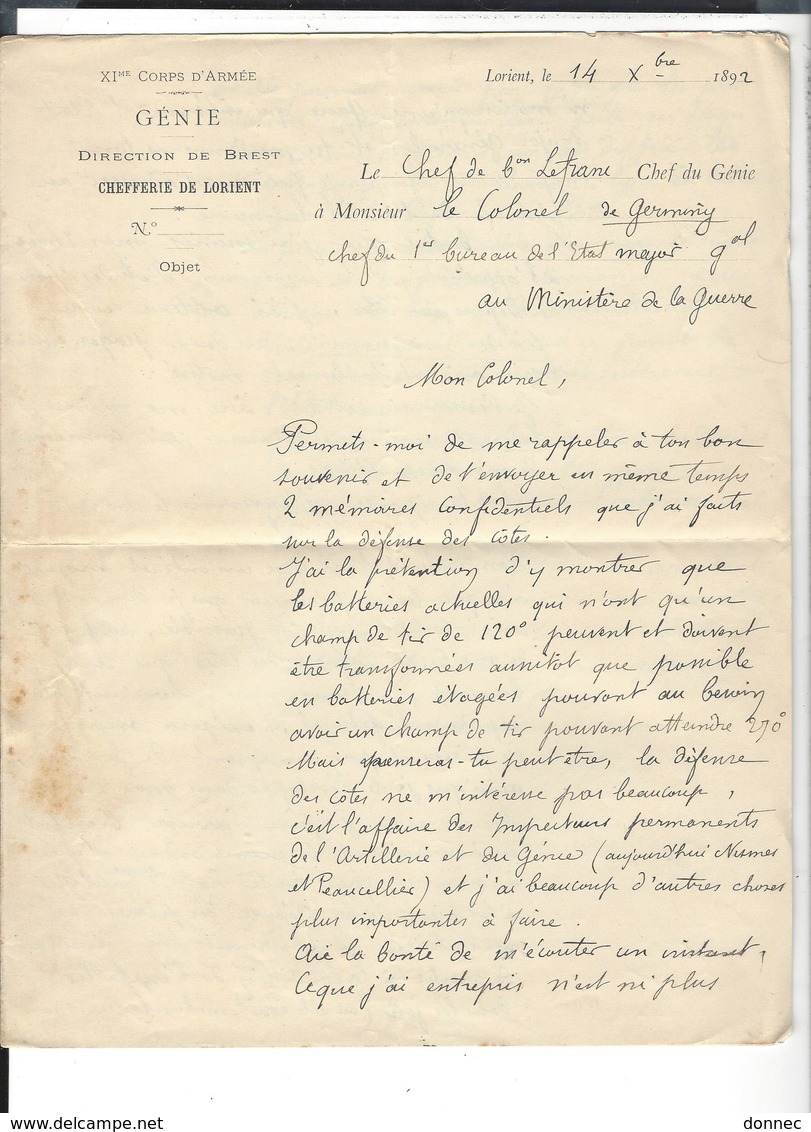 XIME CORPS D'ARMÉE
GÉNIE
DIRECTION DE BREST
CHEFFERIE DE LORIENT
N.°
Objet
Lorient, le 14 Xbre 1892
Le Chef de bon Lefranc Chef du Génie
à Monsieur le Colonel de Germiny
chef du 1er bureau de l'Etat major gal
au Ministère de la Guerre
Mon Colonel,
Permets-moi de me rappeler à ton bon
souvenir et de t'envoyer en même temps
2 mémoires confidentiels que j'ai faits
sur la défense des côtes.
J'ai la prétention d'y montrer que
les batteries actuelles qui n'ont qu'un
champ de tir de 120° peuvent et doivent
être transformées aussitôt que possible
en batteries étagées pouvant au besoin
avoir un champ de tir pouvant atteindre 270°
Mais penseras-tu peut être, la défense
des côtes ne m'intéresse pas beaucoup,
c'est l'affaire des Inspecteurs permanents
de l'Artillerie et du Génie (aujourd'hui Nismes
et Peaucellier) et j'ai beaucoup d'autres choses
plus importantes à faire.
Aie la bonté de m'écouter un instant,
Ce que j'ai entrepris n'est ni plus
donnec